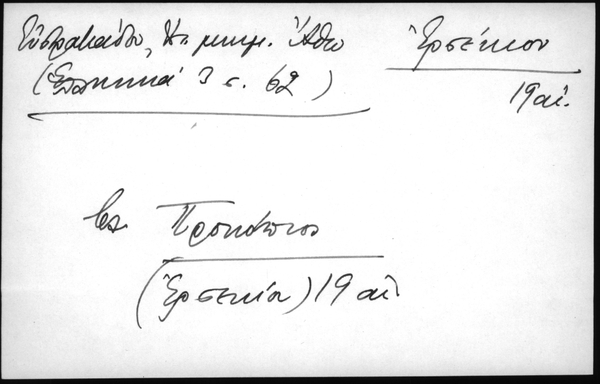 Εὐστρατιάδου, Ἁγ. μνημ. Ἄθω
(Ἑλληνικά 3 σ. 62)
Ἐρσέκιον
19 αἰ.
βλ. Προκόπιος
(Ἐρσεκία) 19 αἰ.